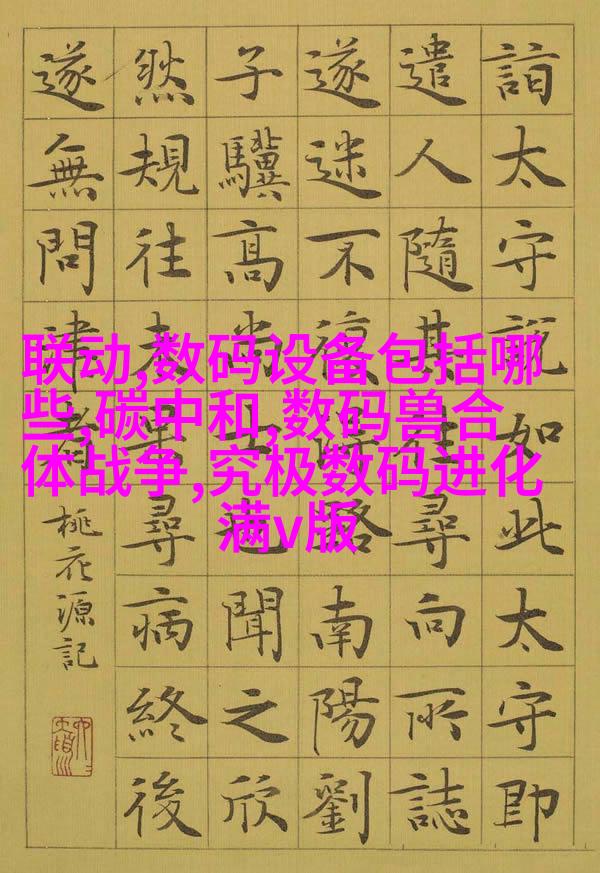 联动,数码设备包括哪
些,碳中和,数码兽合
体战争,究极数码进化
满v版
詣太守說如此太守即
遣人隨其往尋向所誌
遂迷不復得路南陽劉
子驥高尚士也聞之欣
然規往未果尋病終後
遂無問津者
桃花源記